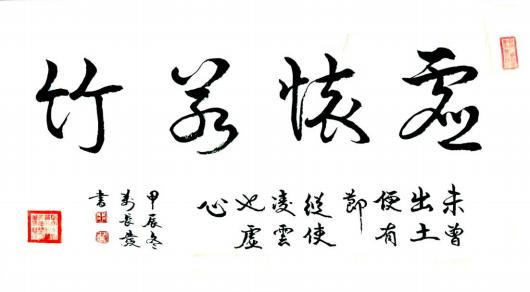 虛懷若竹
未曾
出土
便有
節
縱使
凌雲
也虛
心
甲辰冬
長
書